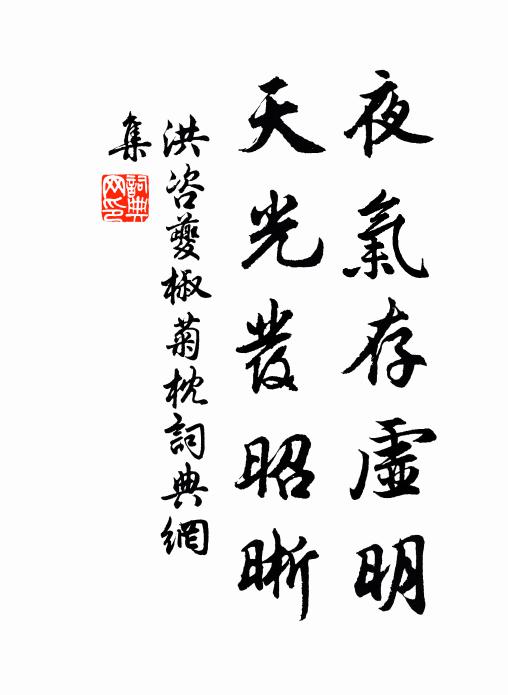 夜氣存虛明
天光發昭晰
洪咨夔椒菊枕詞典網
集
詞典
网印